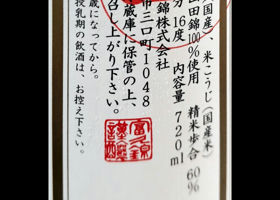 国産、米こうじ(国産米)
田錦100%使用 精米歩合 60%
分16度 内容量 720ml
錦株式会社
市三口町1048
蔵庫に保管の上、
召し上がり下さい。
歳になってから。
授乳期の飲酒は、お控え下さい。
富久錦